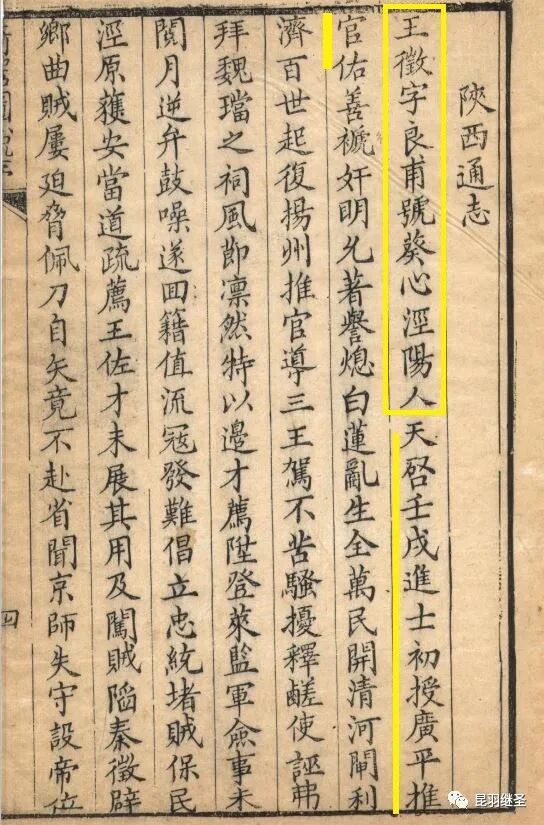 陝西通志
王徵字良甫號葵心涇陽人天启壬戌進士初授廣平推
官佑善褫奸明允著譽熄白蓮亂生全萬民開清河閘利
濟百世起復揚州推官導三王駕不苦騷擾釋鹺使誣弗
拜魏璫之祠風節凛然特以邊才薦陞登萊監軍僉事未
閱月逆弁鼓噪遂囬籍值流冦發難倡立忠統堵賊保民
涇原安當道疏薦王佐才未展其用及闖賊陷秦徵辟
鄉曲賊屢廹脅佩刀自矢竟不赴省聞京師失守設帝位
四
昆羽继圣